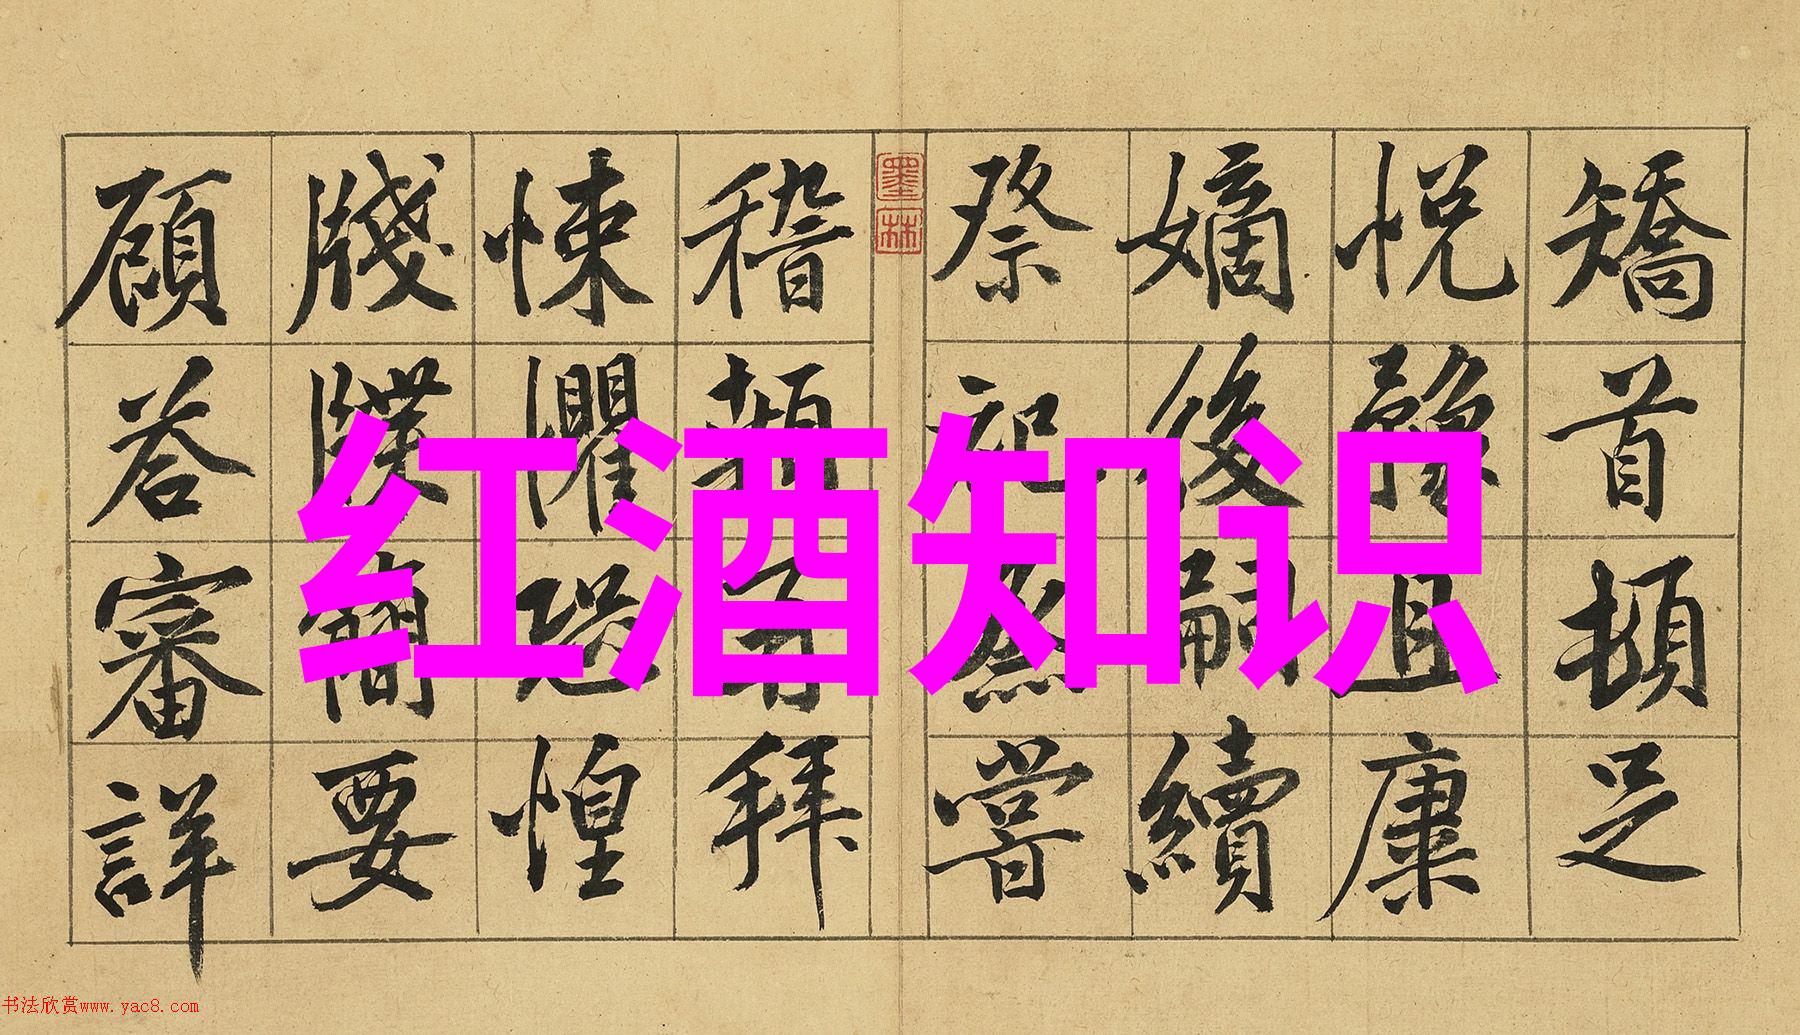 矯首頓足
悅豫且康
嫡後嗣續
祭祀烝嘗
墨林
稽顙再拜
悚懼恐惶
牋牒簡要
顧荅審詳
红酒知识
书法欣赏www.yac8.com